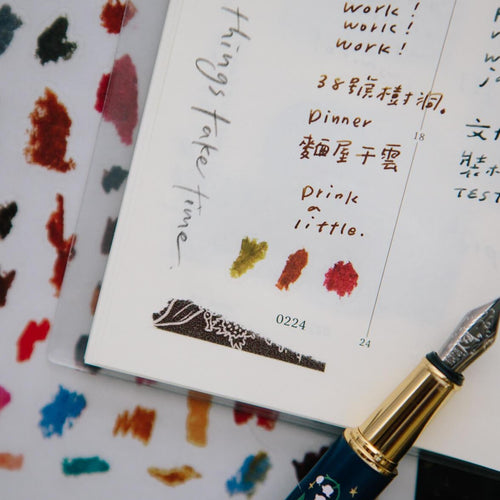 things take time.
work!
work!
work!
38號樹洞。
18
Dinner
麵屋千雲
Drink
a
little.
0224
24
TEST